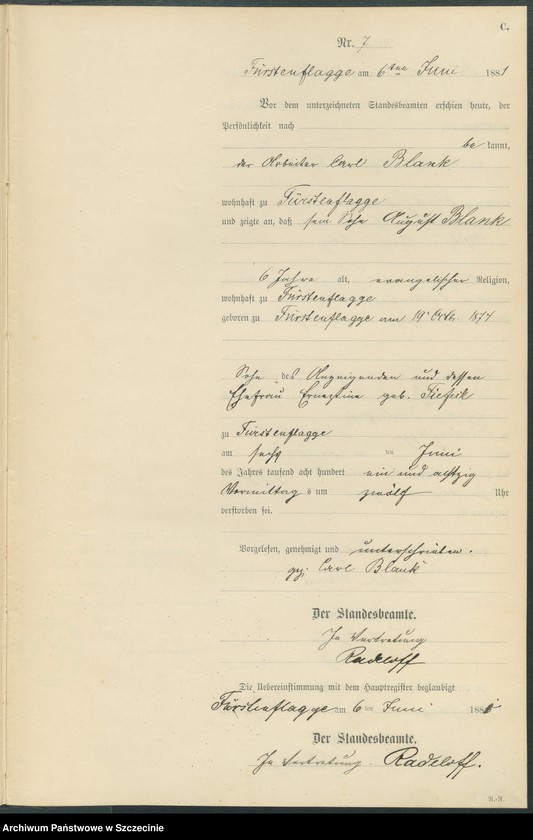 C.
Nr. 7
Fürstenflagge am 6ten Juni 1881
Vor dem unterzeichneten Standesbeamten erschien heute, der
Persönlichkeit nach
bekannt,
der Arbeiter Carl Blank
wohnhaft zu Fürstenflagge
und zeigte an, daß sein Sohn August Blank
6 Jahre alt, evangelischer Religion,
wohnhaft zu Fürstenflagge
geboren zu Fürstenflagge am 19. Octb. 1874
Sohn des Anzeigenden und dessen
Ehefrau Ernestine geb.
zu Fürstenflagge
am sechs ten Juni
des Jahres tausend acht hundert ein und achtzig
Vormittags um zwölf Uhr
verstorben sei.
Vorgelesen, genehmigt und unterschrieben.
gez. Carl Blank
Der Standesbeamte.
In Vertretung
Radeloff
Die Uebereinstimmung mit dem Hauptregister beglaubigt
Fürstenflagge am 6ten Juni 1881
Der Standesbeamte.
In Vertretung. Radeloff.
R.-R.
Archiwum Państwowe w Szczecinie